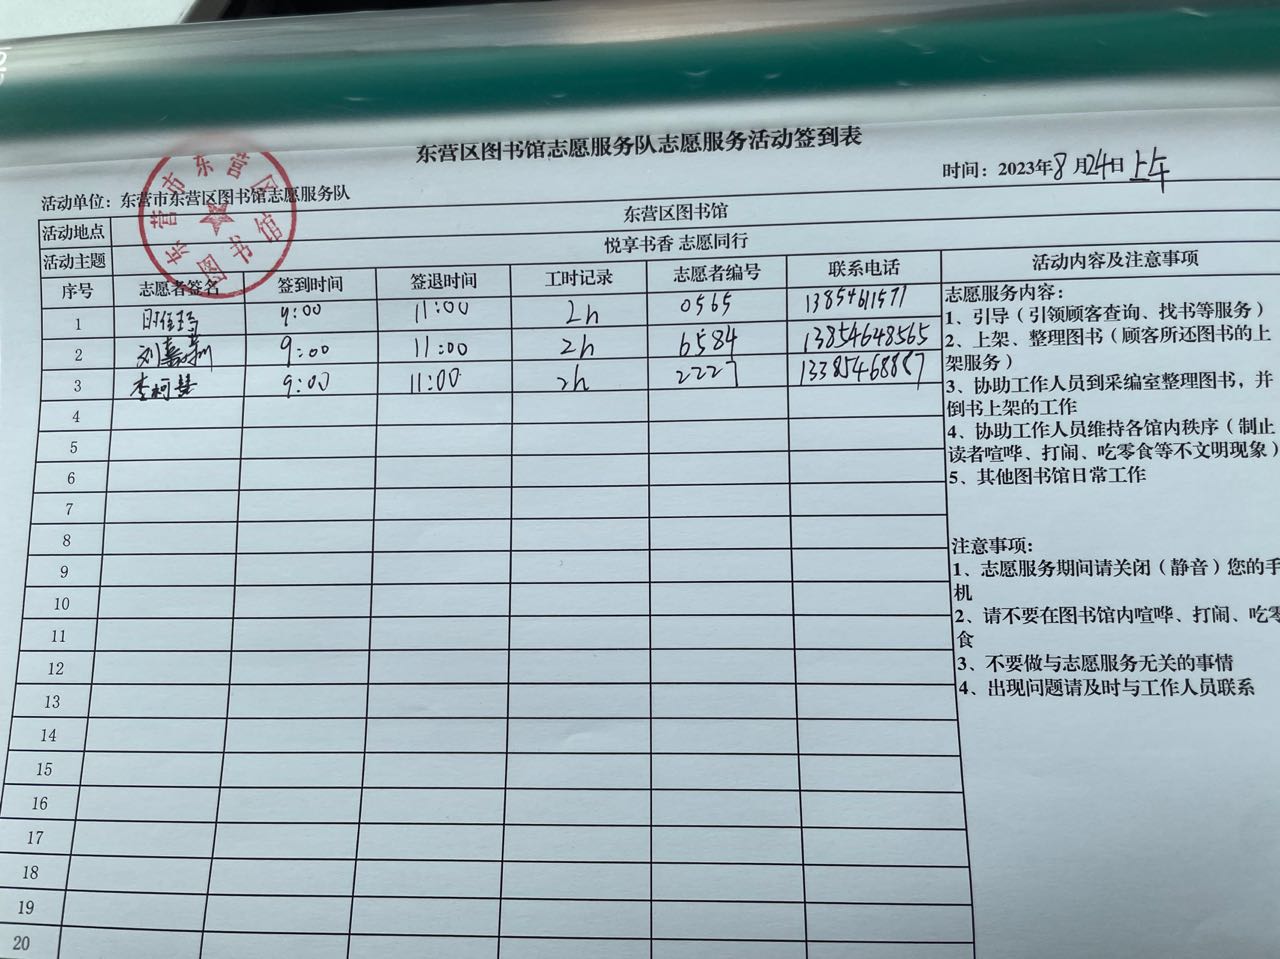 东营区图书馆志愿服务队志愿服务活动签到表
时间：2023年8月24日 上午
活动单位：东营市东营区图书馆志愿服务队
东营市东营区图书馆
活动地点 东营区图书馆
活动主题 悦享书香 志愿同行
序号 志愿者签名 签到时间 签退时间 工时记录 志愿者编号 联系电话 活动内容及注意事项
1 9:00 11:00 2h 0565
2 刘嘉 9:00 11:00 2h 6584 13854648565
3 李柯 9:00 11:00 2h 2227
4
5
6
7
8
9
10
11
12
13
14
15
16
17
18
19
20
志愿服务内容：
1、引导（引领顾客查询、找书等服务）
2、上架、整理图书（顾客所还图书的上
架服务）
3、协助工作人员到采编室整理图书，并
倒书上架的工作
4、协助工作人员维持各馆内秩序（制止
读者喧哗、打闹、吃零食等不文明现象）
5、其他图书馆日常工作
注意事项：
1、志愿服务期间请关闭（静音）您的手
机
2、请不要在图书馆内喧哗、打闹、吃零
食
3、不要做与志愿服务无关的事情
4、出现问题请及时与工作人员联系